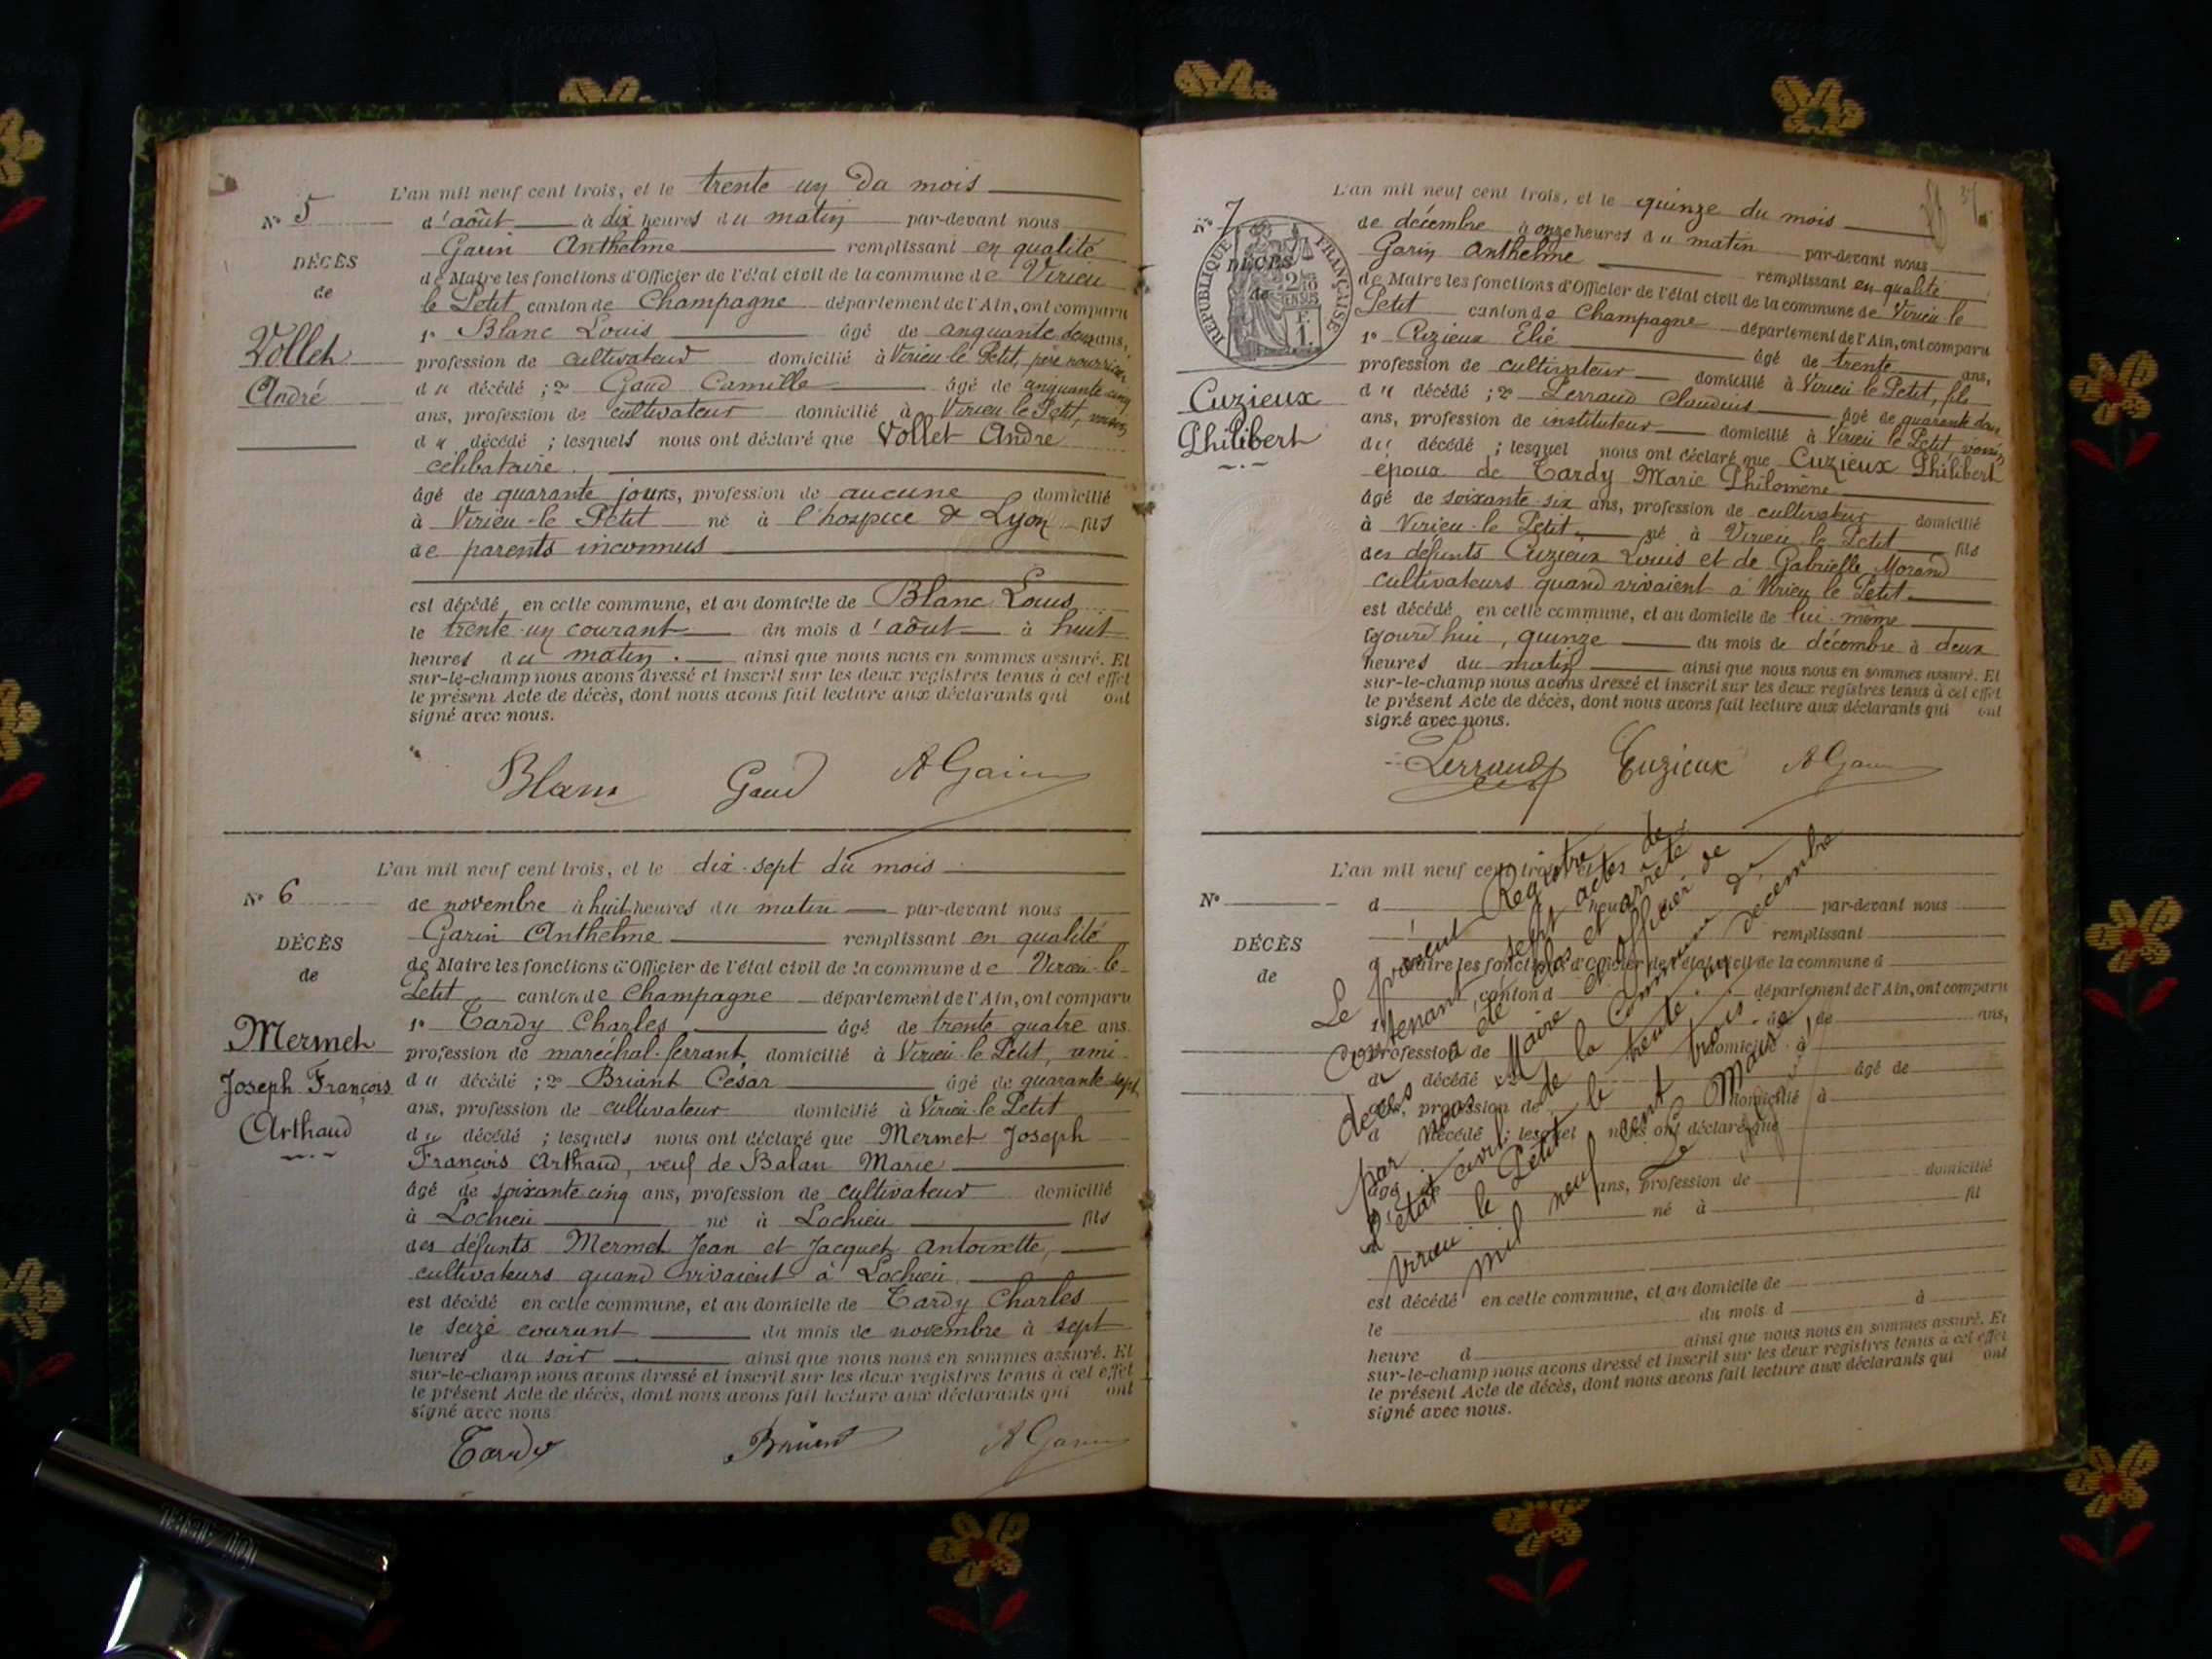 L'an mil neuf cent trois, et le trente un du mois
N° 5 d'août à dix heures du matin par-devant nous
Garin Anthelme remplissant en qualité
DÉCÈS
de Maire les fonctions d'Officier de l'état civil de la commune de Virieu
de
le Petit canton de Champagne département de l'Ain, ont comparu
1° Blanc Louis âgé de cinquante deux ans,
Vollet
profession de cultivateur domicilié à Virieu le Petit, père nourricier
André
du décédé ; 2° Gaud Camille âgé de cinquante cinq
ans, profession de cultivateur domicilié à Virieu le Petit, voisin
du décédé ; lesquels nous ont déclaré que Vollet André
célibataire.
âgé de quarante jours, profession de aucune domicilié
à Virieu-le Petit né à l'hospice de Lyon fils
de parents inconnus
est décédé en cette commune, et au domicile de Blanc Louis
le trente-un courant du mois d'août à huit
heures du matin. ainsi que nous nous en sommes assuré. Et
sur-le-champ nous avons dressé et inscrit sur les deux registres tenus à cet effet
le présent Acte de décès, dont nous avons fait lecture aux déclarants qui ont
signé avec nous.
Blanc Gaud A Garin
L'an mil neuf cent trois, et le dix-sept du mois
N° 6 de novembre à huit heures du matin par-devant nous
Garin Anthelme remplissant en qualité
DÉCÈS
de Maire les fonctions d'Officier de l'état civil de la commune de Virieu-le-
de
Petit canton de Champagne département de l'Ain, ont comparu
1° Tardy Charles âgé de trente quatre ans
Mermet
profession de maréchal-ferrant domicilié à Virieu-le Petit, ami
Joseph François
du décédé ; 2° Briant César âgé de quarante sept
ans, profession de cultivateur domicilié à Virieu-le Petit
Arthaud
du décédé ; lesquels nous ont déclaré que Mermet Joseph
François Arthaud, veuf de Balan Marie
âgé de soixante cinq ans, profession de cultivateur domicilié
à Lochieu né à Lochieu fils
des défunts Mermet Jean et Jacquet Antoinette,
cultivateurs quand vivaient à Lochieu
est décédé en cette commune, et au domicile de Tardy Charles
le seize courant du mois de novembre à sept
heures du soir ainsi que nous nous en sommes assuré. Et
sur-le-champ nous avons dressé et inscrit sur les deux registres tenus à cet effet
le présent Acte de décès, dont nous avons fait lecture aux déclarants qui ont
signé avec nous
Tardy Briant A Garin
37
L'an mil neuf cent trois, et le quinze du mois
N° 7
de décembre à onze heures du matin par-devant nous
Garin Anthelme remplissant en qualité
RÉPUBLIQUE FRANÇAISE
DÉCÈS
2/10 EN SUS
F. 1.
de
de Maire les fonctions d'Officier de l'état civil de la commune de Virieu-le
Petit canton de Champagne département de l'Ain, ont comparu
1° Cuzieux Elié âgé de trente ans,
profession de cultivateur domicilié à Virieu le Petit, fils
Cuzieux
du décédé ; 2° Perraud Claudius âgé de quarante deux
Philibert
ans, profession de instituteur domicilié à Virieu le Petit, voisin
du décédé ; lesquel nous ont déclaré que Cuzieux Philibert
époux de Tardy Marie Philomène
âgé de soixante-six ans, profession de cultivateur domicilié
à Virieu-le Petit né à Virieu le Petit fils
des défunts Cuzieux Louis et de Gabrielle Morand
cultivateurs quand vivaient à Virieu le Petit
est décédé en cette commune, et au domicile de lui-même
aujourd'hui, quinze du mois de décembre à deux
heures du matin ainsi que nous nous en sommes assuré. Et
sur-le-champ nous avons dressé et inscrit sur les deux registres tenus à cet effet
le présent Acte de décès, dont nous avons fait lecture aux déclarants qui ont
signé avec nous.
Perraud Cuzieux A Garin
L'an mil neuf cent trois, et le
N° d heure par-devant nous
remplissant
DÉCÈS
d Maire les fonctions d'Officier de l'état civil de la commune d
de
canton d département de l'Ain, ont comparu
1° âgé de ans,
profession de domicilié à
d décédé ; 2° âgé de
ans, profession de domicilié à
d décédé ; lesquel nous ont déclaré que
âgé de ans, profession de domicilié
né à fil
est décédé en cette commune, et au domicile de
le du mois d à
heure d ainsi que nous nous en sommes assuré. Et
sur-le-champ nous avons dressé et inscrit sur les deux registres tenus à cet effet
le présent Acte de décès, dont nous avons fait lecture aux déclarants qui ont
signé avec nous.
Le présent Registre
contenant sept actes de
décès a été clos et arrêté
par nous Maire et officier de
l'état civil de la Commune de
Virieu-le Petit le trente un décembre
mil neuf cent trois.
Le Maire